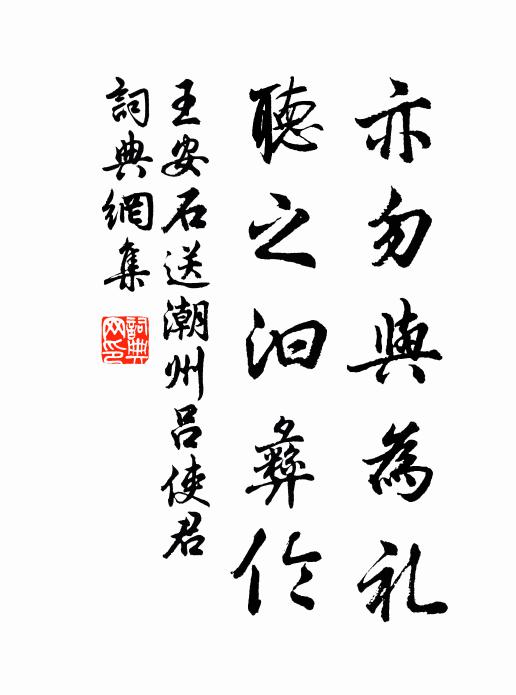 亦勿與為礼
聽之汩彝倫
王安石送潮州呂使君
詞典網集
詞典網印